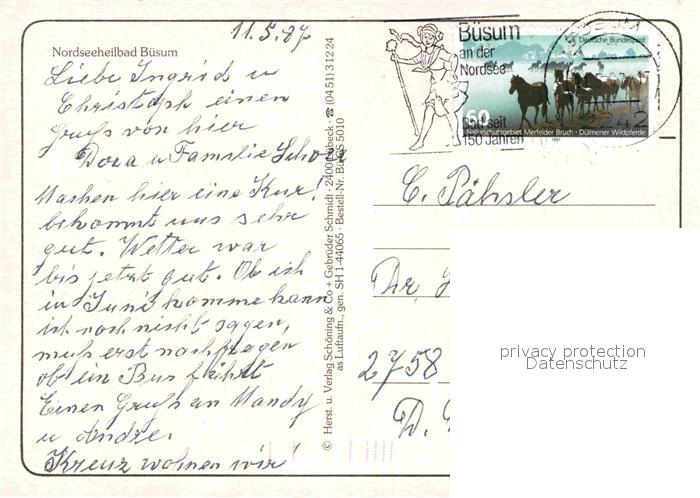 11.5.87
Nordseeheilbad Büsum
Liebe Ingrid u
Christoph einen
Gruß von hier
Dora u Familie
Machen hier eine Kur!
bekommt uns sehr
gut. Wetter war
bis jetzt gut. Ob ich
in Juni komme kann
ich noch nicht sagen,
muß erst nachfragen
ob ein Bus fährt
Einen Gruß an Mandy
u Andre.
Kreuz wohnen wir!
© Herst. u. Verlag Schöning & Co + Gebrüder Schmidt · 2400 Lübeck · ☎ (04 51) 3 12 24
as Luftaufn., gen. SH 1-44065 · Bestell-Nr. Büs S 5010
Büsum
an der
Nordsee
Bad seit
150 Jahren
Deutsche Bundespost
60
Naturschutzgebiet Merfelder Bruch · Dülmener Wildpferde
1987
BÜSUM
C. Pähsler
Dr.
2758
D.
privacy protection
Datenschutz